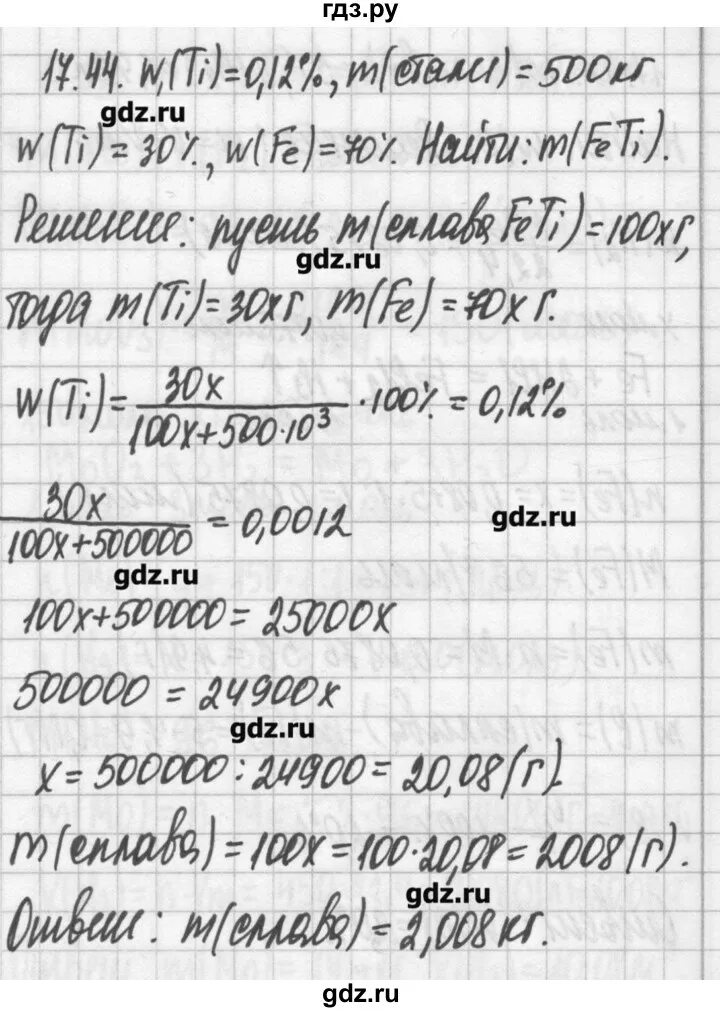 гдз.ру
17.44. w(Ti)=0,12%, m(стали)=500кг
gdz.ru
w(Ti)=30%, w(Fe)=70% Найти: m(FeTi).
Решение: пусть m(сплава FeTi)=100xг,
gdz.ru
тогда m(Ti)=30xг, m(Fe)=70x г.
w(Ti)= 30x / (100x+500·10³) ·100% = 0,12%
30x / (100x+500000) = 0,0012
gdz.ru
gdz.ru
100x+500000=25000x
500000=24900x
gdz.ru
x=500000:24900=20,08(г).
m(сплава)=100x=100·20,08=2008(г).
gdz.ru
Ответ: m(сплава)=2,008кг.
gdz.ru